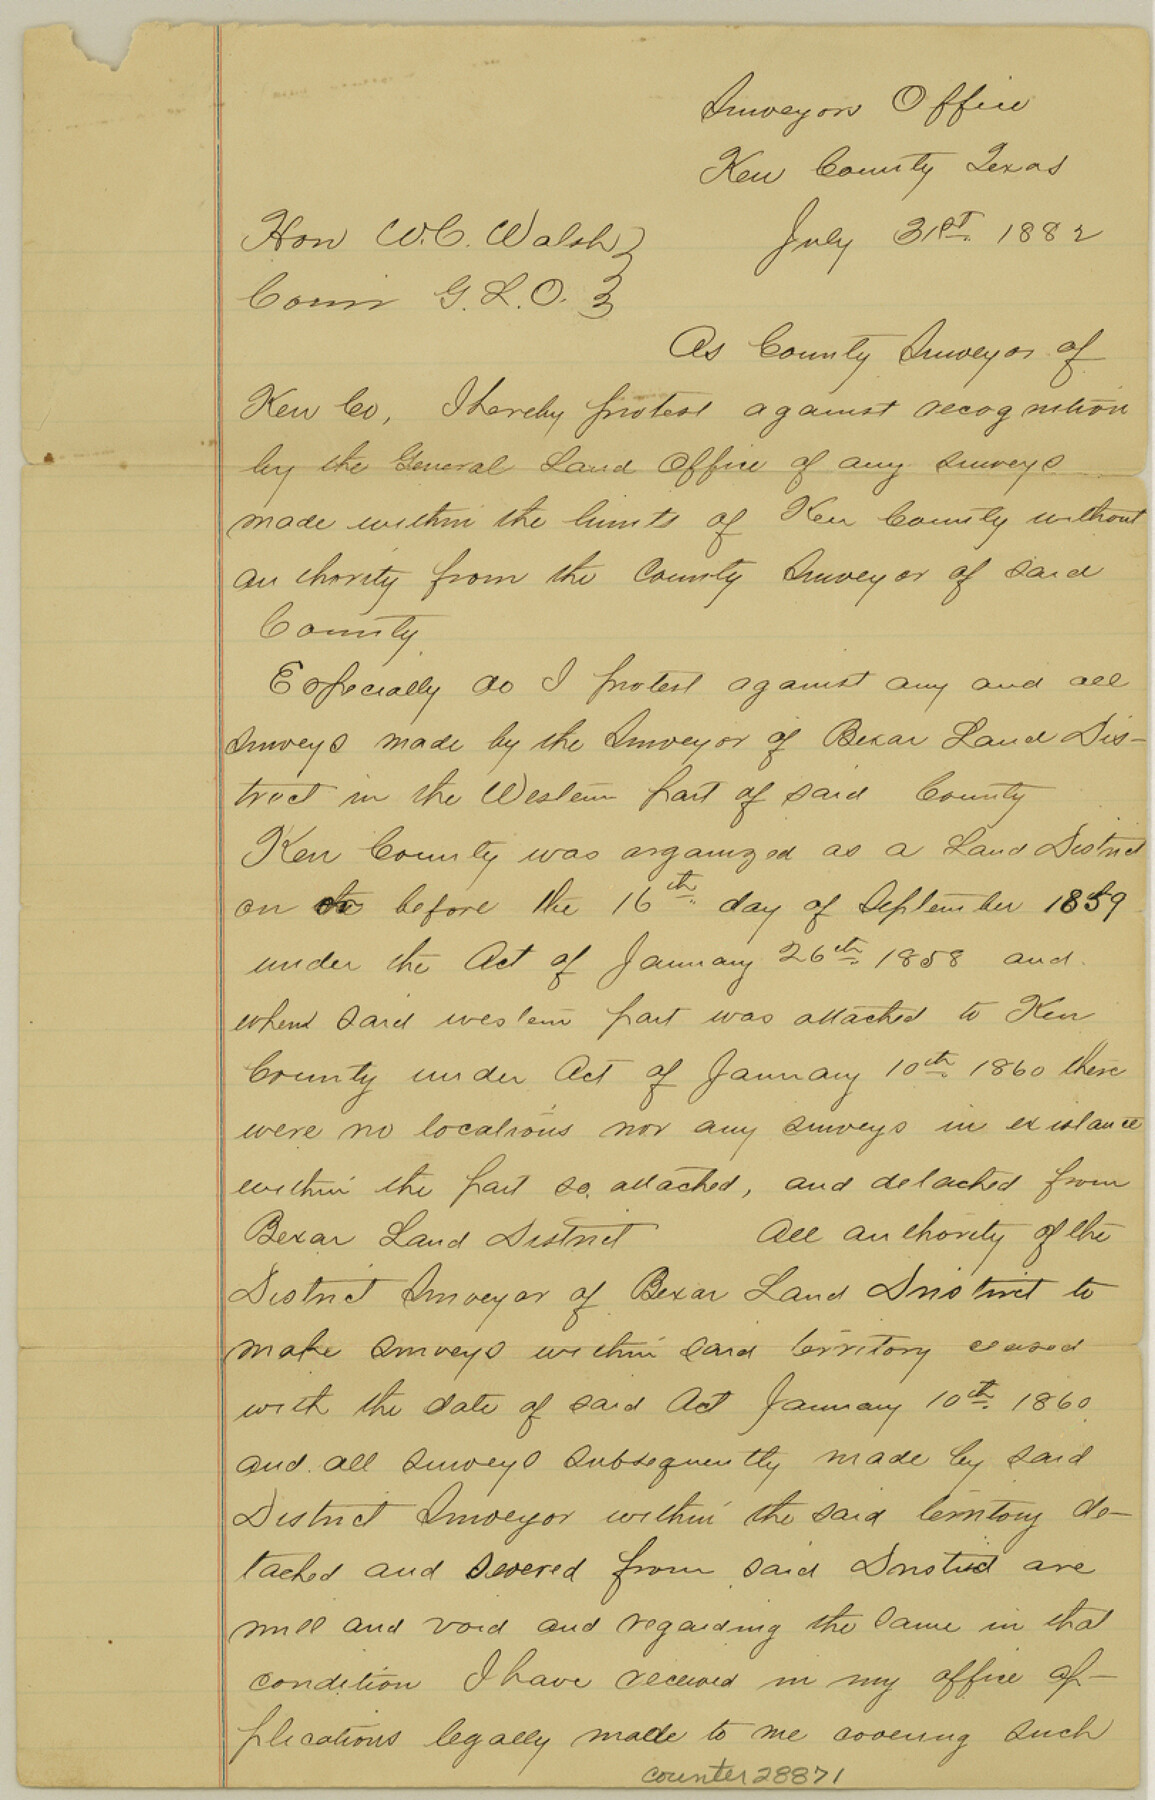 Surveyors Office
Kerr County Texas
Hon W.C. Walsh } July 31st. 1882
Comr G.L.O. }
As County Surveyor of
Kerr Co, I hereby protest against recognition
by the General Land Office of any surveys
made within the limits of Kerr County without
authority from the County Surveyor of said
County
Especially do I protest against any and all
surveys made by the Surveyor of Bexar Land Dis-
trict in the Western part of said County
Kerr County was organized as a Land District
on or before the 16th. day of September 1859
under the Act of January 26th. 1858 and
when said western part was attached to Kerr
County under Act of January 10th. 1860 there
were no locations nor any surveys in existance
within the part so attached, and detached from
Bexar Land District All authority of the
District Surveyor of Bexar Land Dristrict to
make surveys within said territory ceased
with the date of said Act January 10th. 1860
and all surveys subsequently made by said
District Surveyor within the said territory de-
tached and severed from said District are
null and void and regarding the same in that
condition I have received in my office ap-
plications legally made to me covering such
counter 28871